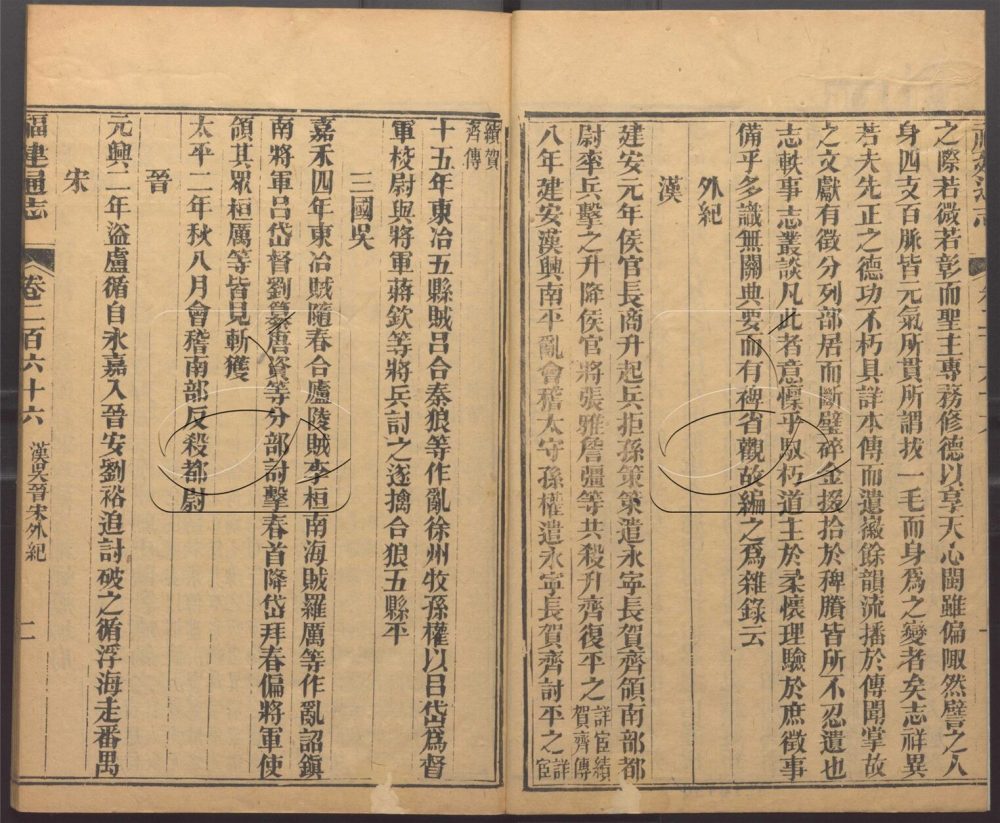 之際若微若彰而聖主專務修德以享天心閩雖偏陬然譬之人
身四支百脈皆元氣所貫所謂拔一毛而身為之變者矣志祥異
若夫先正之德功不朽具詳本傳而遺徽餘韻流播於傳聞掌故
之文獻有徵分列部居而斷璧碎金掇拾於稗牘皆所不忍遺也
志軼事志叢談凡此者意懍乎馭朽道主於柔懷理驗於庶徵事
備乎多識無關典要而有裨省觀故編之爲雜錄云
外紀
漢
建安元年侯官長商升起兵拒孫策策遣永寧長賀齊領南部都
尉率兵擊之升降侯官將張雅詹彊等共殺升齊復平之詳宦績賀齊傳
八年建安漢興南平亂會稽太守孫權遣永寧長賀齊討平之詳宦
績賀齊傳
十五年東冶五縣賊呂合秦狼等作亂徐州牧孫權以呂岱爲督
軍校尉與將軍蔣欽等將兵討之遂擒合狼五縣平
三國吳
嘉禾四年東冶賊隨春合廬陵賊李桓南海賊羅厲等作亂詔鎭
南將軍呂岱督劉纂唐資等分部討擊春首降岱拜春偏將軍使
領其眾桓厲等皆見斬獲
太平二年秋八月會稽南部反殺都尉
晉
元興二年盜盧循自永嘉入晉安劉裕追討破之循浮海走番禺
宋
福建通志 卷二百六十六 漢吳晉宋外紀 二